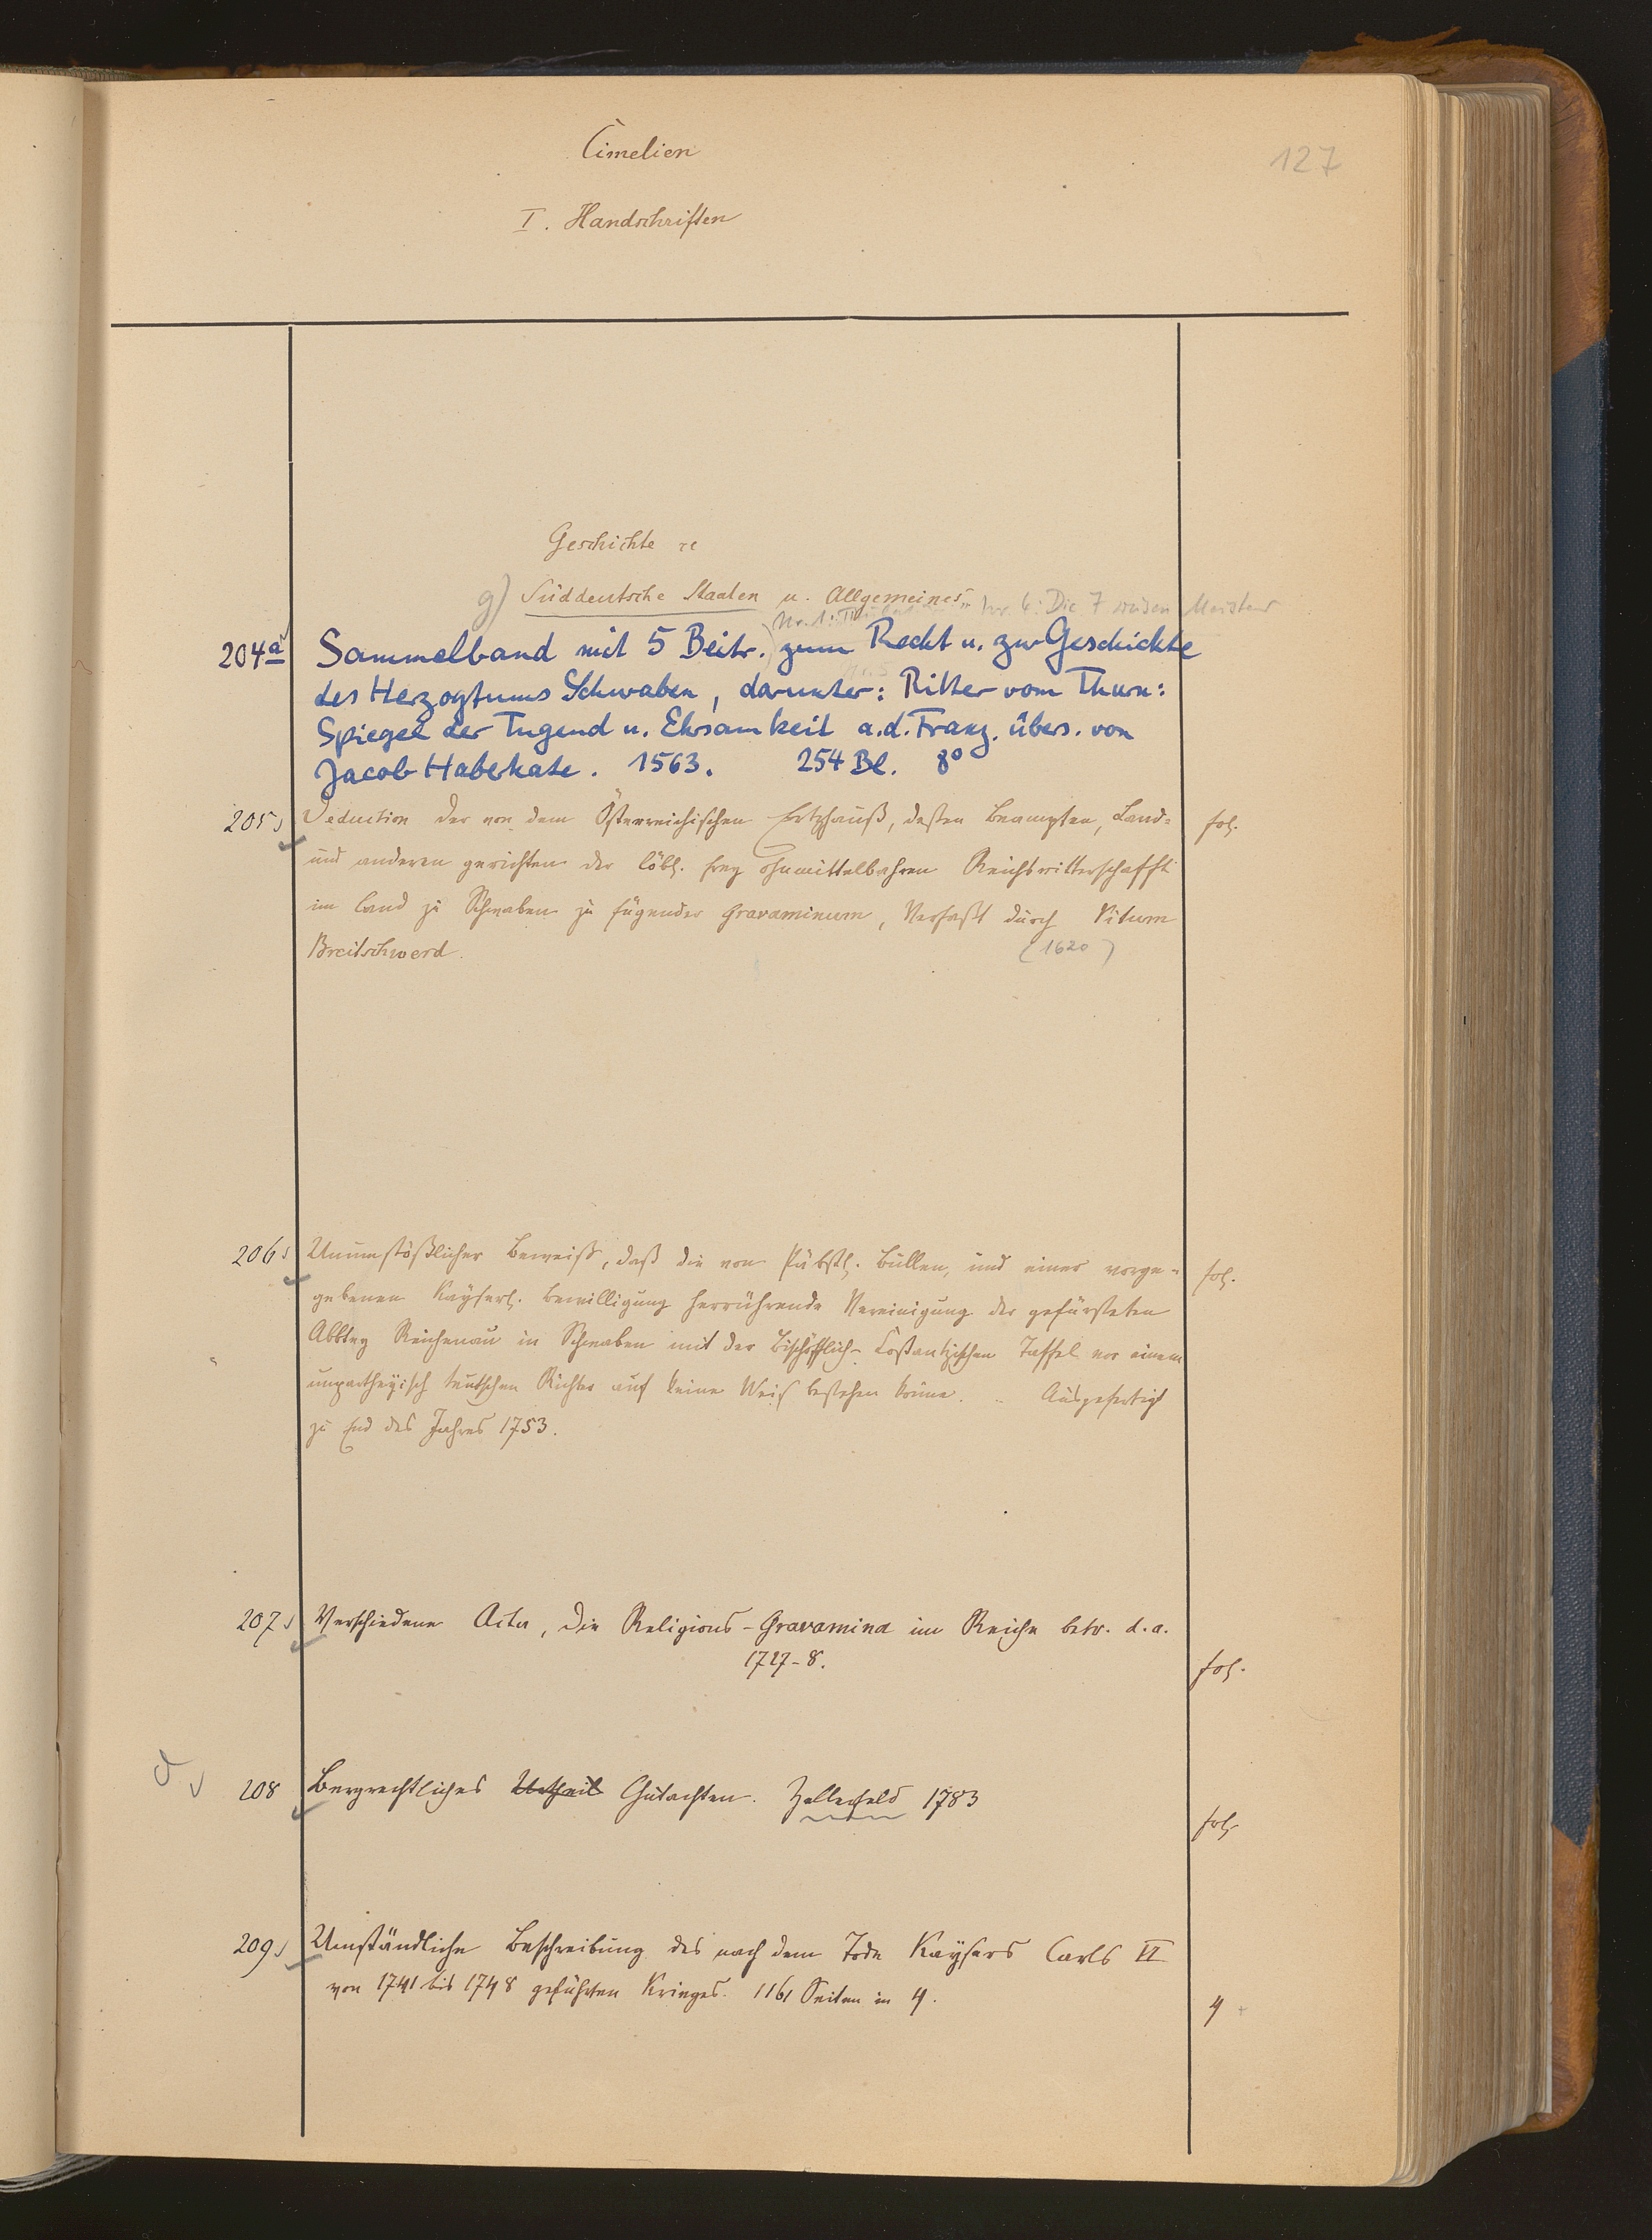 Cimelien
127
I. Handschriften
Geschichte
g) Süddeutsche Staaten u. Allgemeines
Nr. 6: Die 7 weisen Meister
204a Sammelband mit 5 Beitr. zum Recht u. zur Geschichte
des Herzogtums Schwaben, darunter: Ritter vom Thurn:
Spiegel der Tugend u. Ehrsamkeit a.d. Franz. übers. von
Jacob Haberkate. 1563. 254 Bl. 8°
205 Deduction der von dem Österreichischen Ertzhauß, desten Beampten, Land- fol.
und anderen gerichten der löbl. frey ohnmittelbahren Reichsritterschafft
im Land zu Schwaben zu fügender Gravaminum, Verfaßt durch Vitum
Breitschwerd. (1620)
206 Unumstößlicher Beweiß, daß die von Päbstl. Bullen, und einer vorge- fol.
gebenen Kayserl. Bewilligung herrührende Vereinigung der gefürsteten
Abbtey Reichenau in Schwaben mit der Bischöfflich-Costantzischen Taffel vor einem
unpartheyisch teutschen Richter auf keine Weis bestehen könne. .. Ausgefertigt
zu End des Jahres 1753.
207 Verschiedene Acta, die Religions-Gravamina im Reiche betr. d. a.
1727-8. fol.
208 Bergrechtliches Urtheil Gutachten. Zellerfeld 1783
fol.
209 Umständliche Beschreibung des nach dem Tode Kaysers Carls VI
von 1741 bis 1748 geführten Krieges. 1161 Seiten in 4.
4